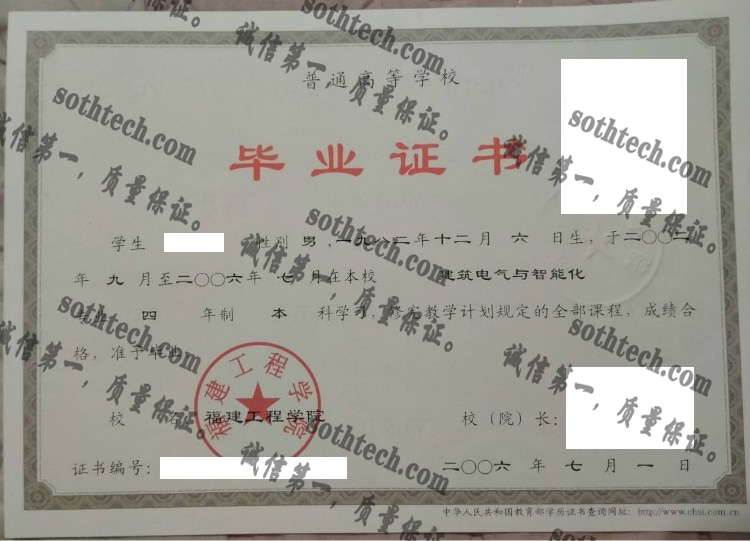 普通高等学校
毕业证书
学生 性别 男 ,一九八二年十二月 六 日生，于二〇〇二
年 九 月至二〇〇六年 七 月在本校 建筑电气与智能化
专业 四 年制 本 科学习，修完教学计划规定的全部课程，成绩合
格，准予毕业
校 名: 福建工程学院
福建工程学院
校（院）长:
证书编号:
二〇〇六 年 七 月 一 日
中华人民共和国教育部学历证书查询网址: http://www.chsi.com.cn
sothtech.com
诚信第一，质量保证。
sothtech.com
诚信第一，质量保证。
sothtech.com
诚信第一，质量保证。
sothtech.com
诚信第一，质量保证。
sothtech.com
诚信第一，质量保证。
sothtech.com
诚信第一，质量保证。
sothtech.com
诚信第一，质量保证。
sothtech.com